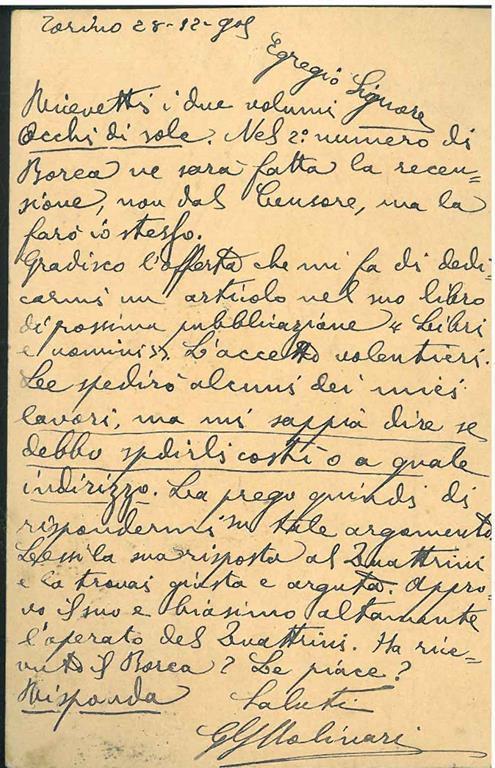 Torino 28-12-905
Egregio Signore
Ricevetti i due volumi
Occhi di sole. Nel 2º numero di
Borea ne sarà fatta la recen-
sione, non dal Censore, ma la
farò io stesso.
Gradisco l'offerta che mi fa di dedi-
carmi un articolo nel suo libro
di possima pubblicazione « Libri
e uomini ». L'accetto volentieri.
Le spedirò alcuni dei miei
lavori, ma mi sappia dire se
debbo spedirli costì o a quale
indirizzo. La prego quindi di
rispondermi su tale argomento
Lessi la sua risposta al Quattrini
e la trovai giusta e arguta. Appro-
vo il suo e biasimo altamente
l'operato del Quattrini. Ha rice-
vuto il Borea? Le piace?
Risponda
Saluti
GG Molinari